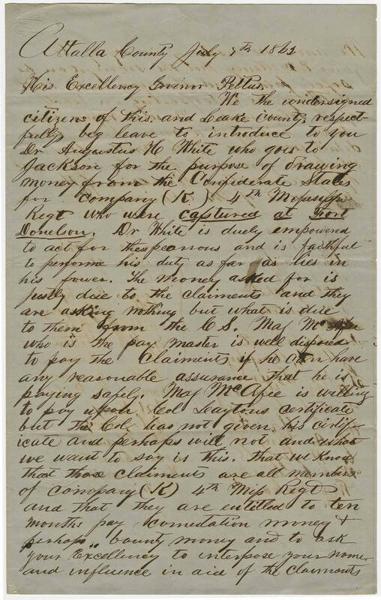 Attalla County July 7th 1862
His Excellency Govinor Pettus,
We the undersigned
citizens of this and Leake County respect-
fully beg leave to introduce to you
Dr Augustus H White who goes to
Jackson for the purpose of drawing
money from the Confederate States
for Company (K) 4th Mississippi
Regt who were captured at Fort
Donelson. Dr White is duely empowered
to act for the persons and is faithful
to performe his duty as far as lies in
his power. The money asked for is
justly due to the claiments and they
are asking nothing but what is due
to them from the C.S. Maj McAfee
who is the pay master is well disposed
to pay the Claiments if he can have
any reasonable assurance that he is
paying safely. Maj McAfee is willing
to pay upon Col Draytons certificate
but the Col has not given his certif-
icate and perhaps will not and what
we want to say is this. That we know
that those Claiments are all members
of company (K) 4th Miss Regt
and that they are entitled to ten
months pay comudation money &
perhaps bounty money and to ask
your Excellency to interpose your name
and influence in aid of the claiments